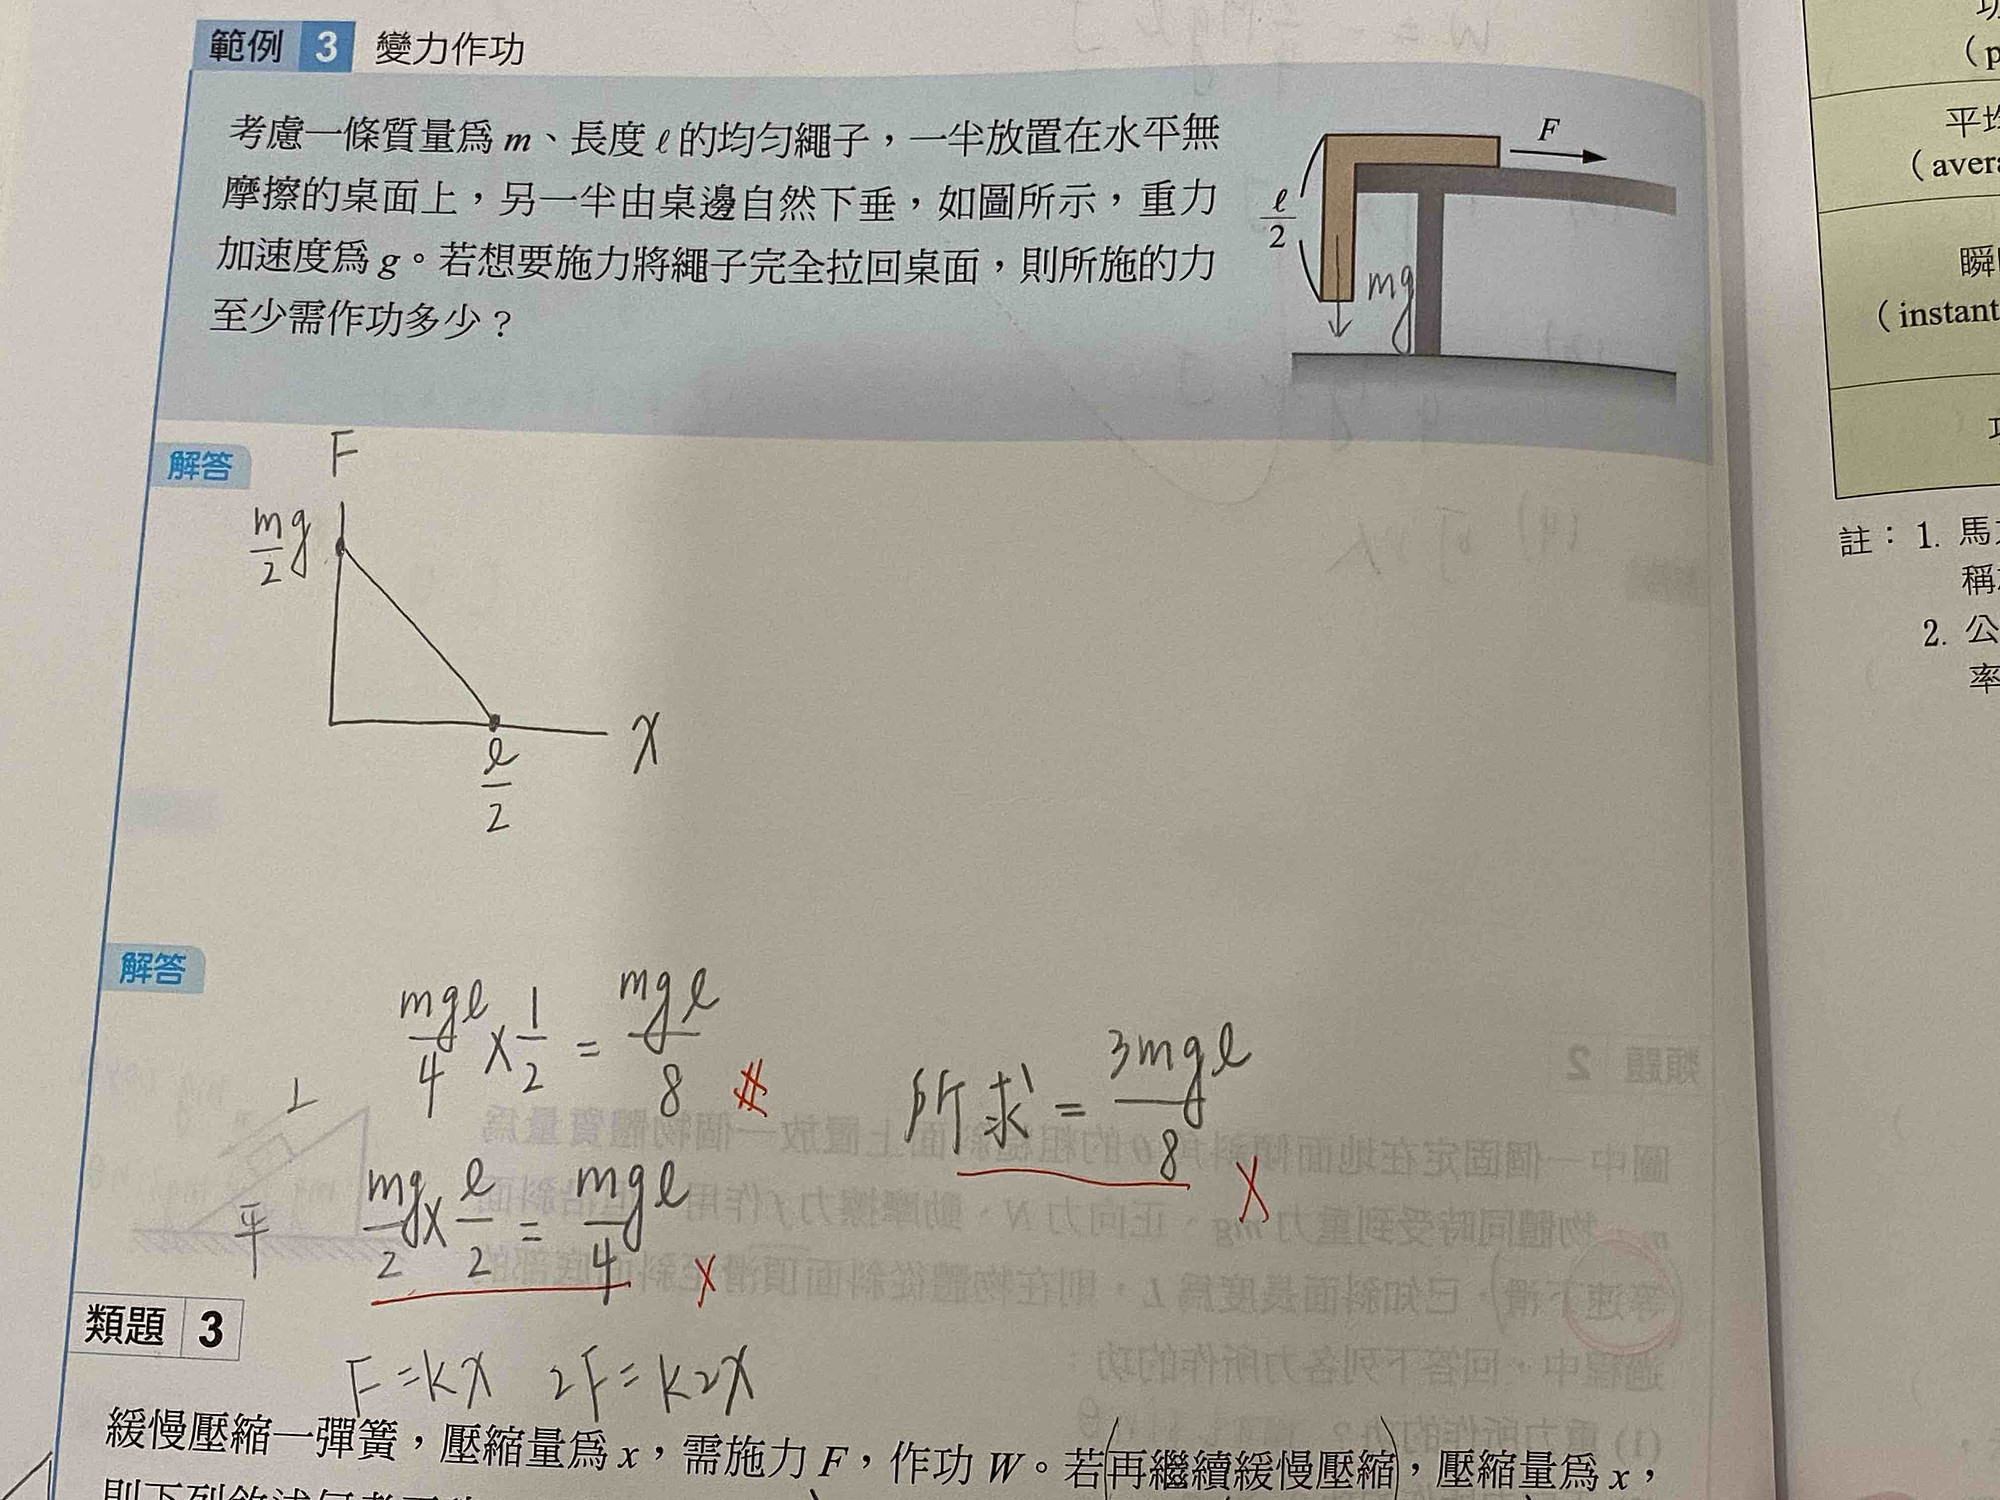 範例 3 變力作功
考慮一條質量為 m、長度 ℓ 的均勻繩子,一半放置在水平無
摩擦的桌面上,另一半由桌邊自然下垂,如圖所示,重力
加速度為 g。若想要施力將繩子完全拉回桌面,則所施的力
至少需作功多少?
F
ℓ/2
mg
解答
F
mg/2
ℓ/2
x
解答
mgℓ/4 × 1/2 = mgℓ/8 #
所求 = 3mgℓ/8 X
平 mg/2 × ℓ/2 = mgℓ/4 X
類題 3
F=kx 2F=k2x
緩慢壓縮一彈簧,壓縮量為 x,需施力 F,作功 W。若再繼續緩慢壓縮,壓縮量為 x,
(p
平均
(avera
瞬
(instant
註:1. 馬
稱
2. 公
率